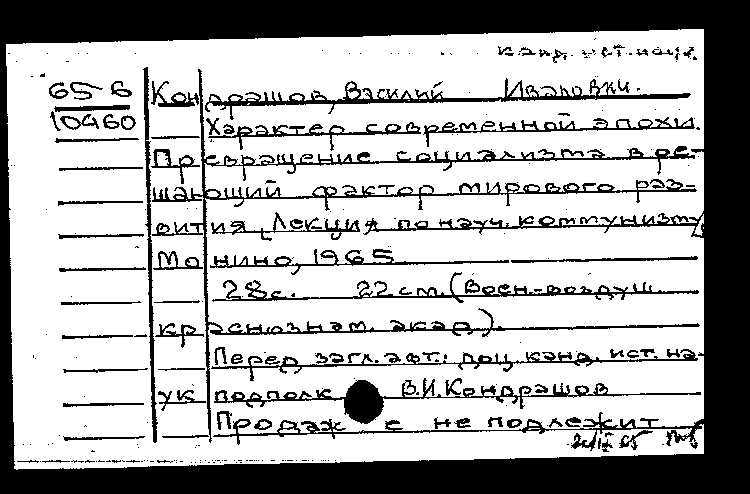 канд. ист. наук.
65-6 Кондрашов, Василий Иванович.
10460 Характер современной эпохи.
Превращение социализма в ре-
шающий фактор мирового раз-
вития [Лекция по науч. коммунизму]
Монино, 1965
28с. 22 см. (Воен.-воздуш.
краснознам. акад).
Перед загл. авт.: доц. канд. ист. на-
ук подполк В.И. Кондрашов
Продаже не подлежит